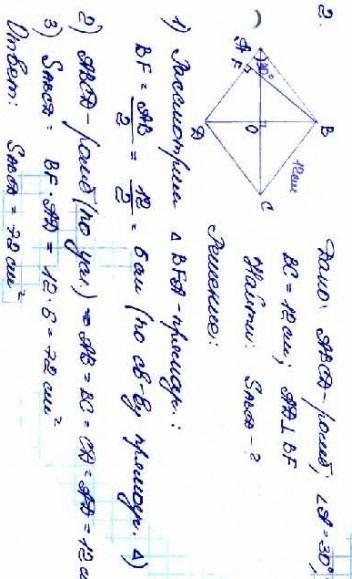 2.
Дано: ABCD - ромб; ∠A = 30°;
BC = 12 см; AD ⊥ BF
Найти: SABCD - ?
Решение:
A
F
30°
B
12 см
O
C
D
1) Рассмотрим △ BFA - прямоуг.:
BF = AB/2 = 12/2 = 6 см (по св-ву прямоуг. △)
2) ABCD - ромб (по усл.) ⇒ AB = BC = CD = AD = 12 см
3) SABCD = BF · AD = 12 · 6 = 72 см²
Ответ: SABCD = 72 см²